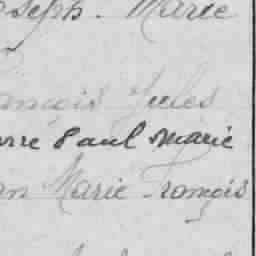 oseph. Marie
ançois Jules
erre Paul Marie
an Marie François